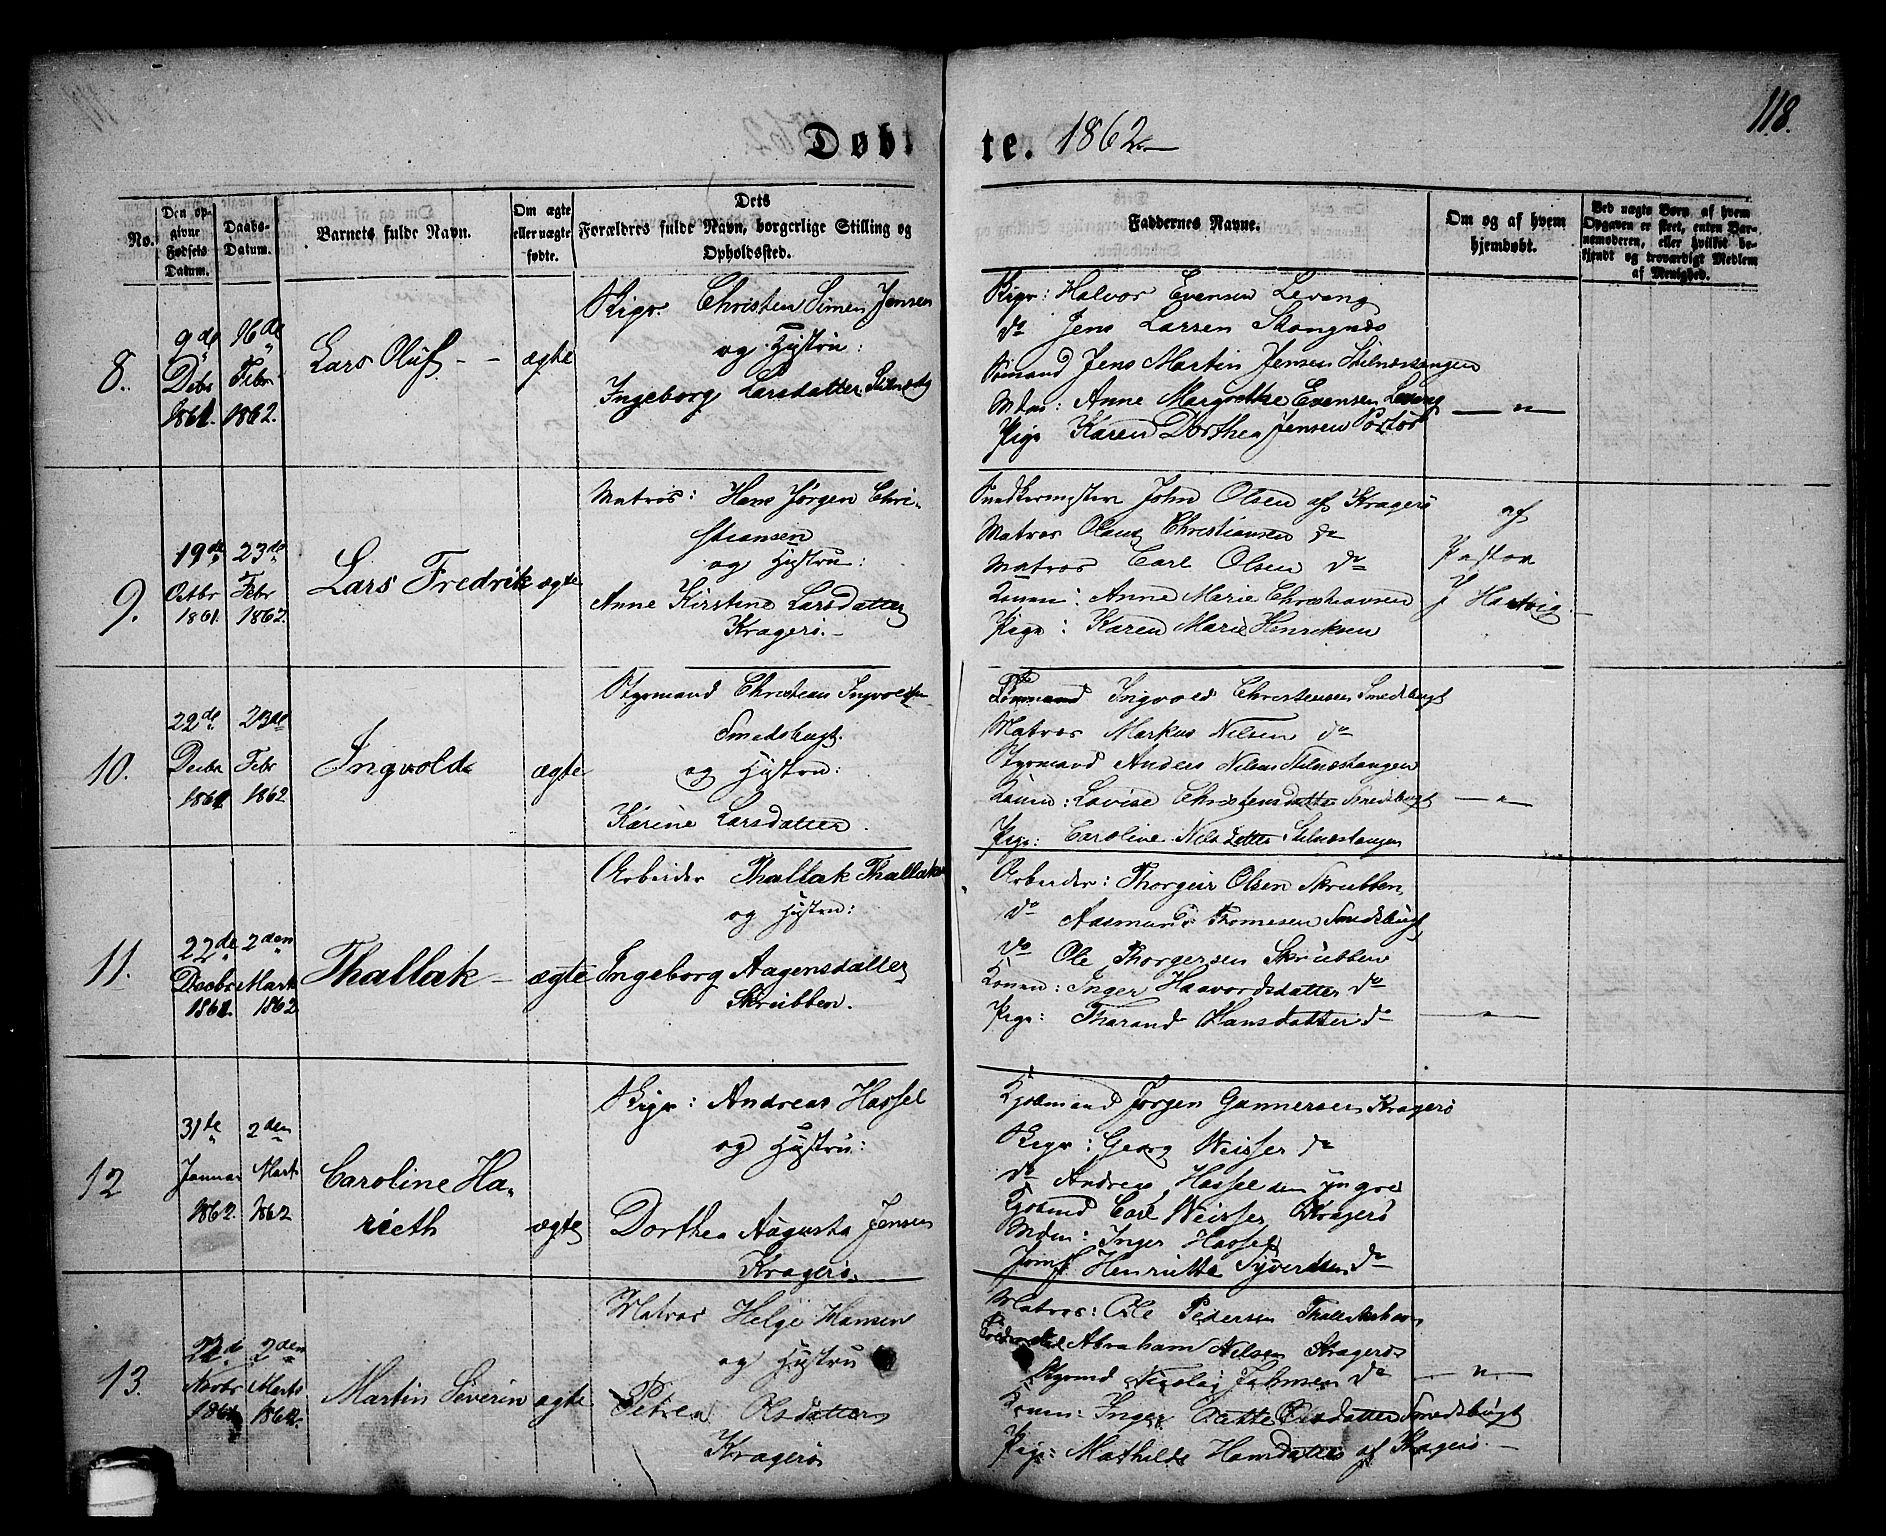 118.
Døbte. 1862
No.
Den opgivne Fødsels Datum.
Daabs-Datum.
Barnets fulde Navn.
Om ægte eller uægte fødte.
Dets Forældres fulde Navn, borgerlige Stilling og Opholdssted.
Faddernes Navne.
Om og af hvem hjemdøbt.
Ved uægte Børn af hvem Opgaven er skeet, enten Barnemoderen, eller hvilket bekjendt og troværdigt Medlem af Menighed.
8.
9de Debr 1861.
16de Febr 1862.
Lars Oluf
ægte
Skipr. Christen Simen Jensen
og Hustru:
Ingeborg Larsdatter
Skipr: Halvor Evensen Levang
do Jens Larsen Stangnæs
Sømand Jens Martin Jensen Stilnæstangen
Mdm: Anne Margrethe Evensen Levang
Pige Karen Dorthea Jensen Portør
— " —
9.
19de Octbr 1861.
23de Febr 1862.
Lars Fredrik
ægte
Matros: Hans Jørgen Chri-
stiansen
og Hustru:
Anne Kirstine Larsdatter
Kragerø.
Snedkermester John Olsen af Kragerø
Matros Olaus Christiansen do
Matros Carl Olsen do
Konen: Anne Marie Christiansen
Pige: Karen Marie Henriksen
af
Pastor
J Hartvig.
10.
22de Decbr 1861
23de Febr 1862
Ingvold
ægte
Styrmand Christian Ingvoldsen
Smedsbugt.
og Hustru:
Karine Larsdatter.
Ingvold Christensen Smedsbugt
Matros Markus Nilsen do
Styrmand Anders Nilsen Stilnæstangen
Konen: Lovise Christensdatter Smedsbugt
Pige: Caroline Nilsdatter Stilnæstangen
— " —
11.
22de Decbr 1861.
2den Marts 1862
Thallak
ægte
Arbeider Thallak Thallaksen
og Hustru:
Ingeborg Aagensdatter
Skrubben.
Arbeider: Thorgeir Olsen Skrubben
do Aasmund Thomesen Smedsbugt
do Ole Thorgersen Skrubben
Konen: Inger Haavordsdatter do
Pige: Tharand Hansdatter do
— " —
12
31te Januar 1862.
2den Marts 1862
Caroline Ha-
rieth
ægte
Skipr: Andreas Hassel
og Hustru:
Dorthea Augusta Jensen
Kragerø.
Kjøbmand Jørgen Gunnersen Kragerø
Skipr: Georg Weisser do
do Andreas Hassel den yngre
Carl Weisser, Kragerø
Mdm: Inger Hassel
Jomf. Henriette Syvertsen do
13.
Novbr 1861
2den Marts 1862.
Martin Severin
ægte
Matros Helge Hansen
og Hustru
Petrea Olsdatter
Kragerø
Matros: Ole Pedersen
Abraham Nilsen Kragerø
Styrmd Nicolai Johnsen do
Konen: Inger Olsdatter Smedsbugt
Pige: Mathilde Hansdatter af Kragerø.
— " —